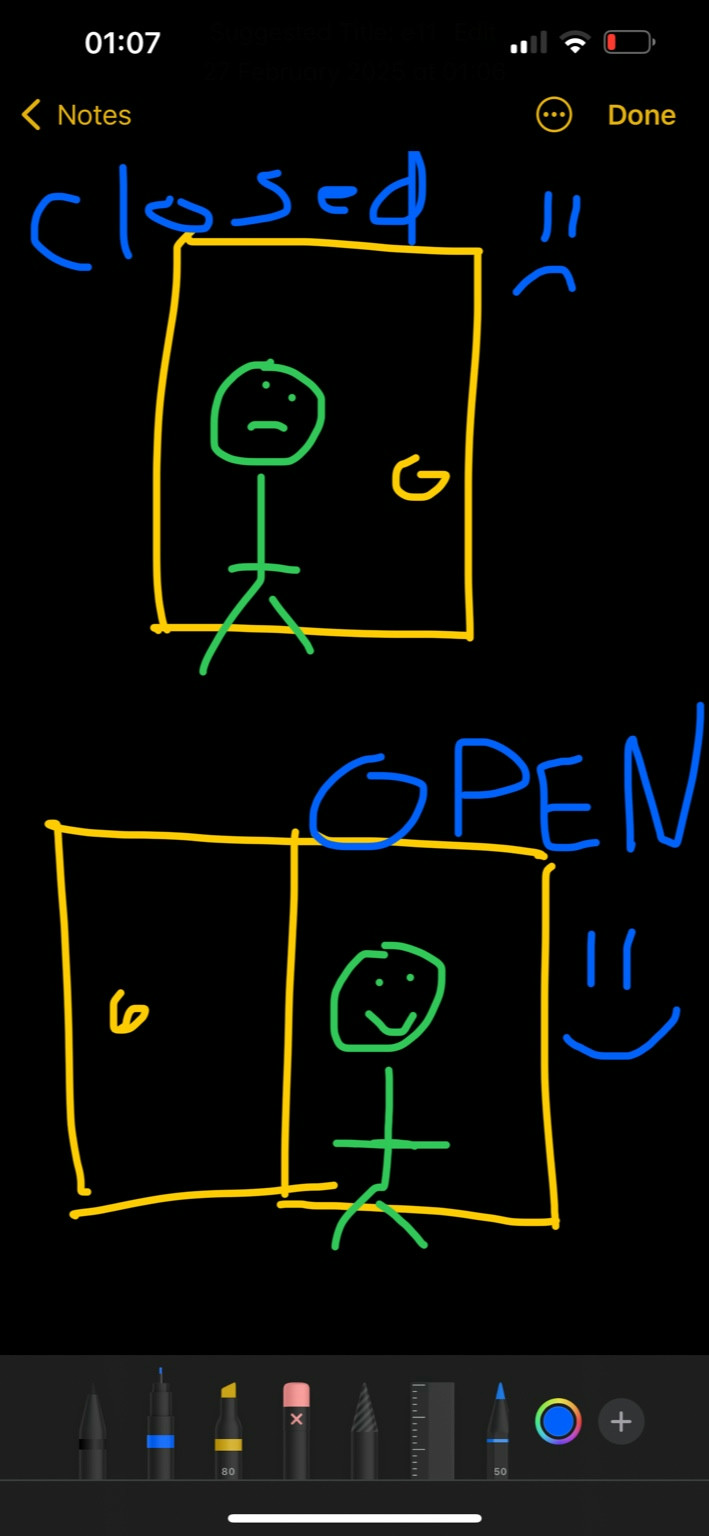 01:07
Notes
Done
Closed
OPEN
80
50